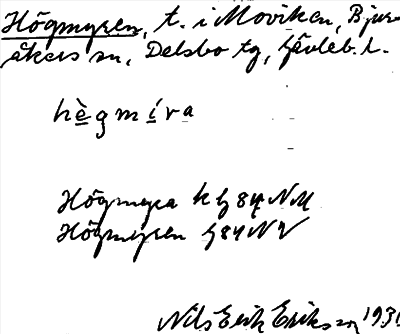 Högmyren, t. i Moviken, Bjur-
åkers sn, Delsbo tg, Gävleb. l.
hègmíra
Högmyra k G 84 NM
Högmyren G 84 NV
Nils Erik Eriksson 1931